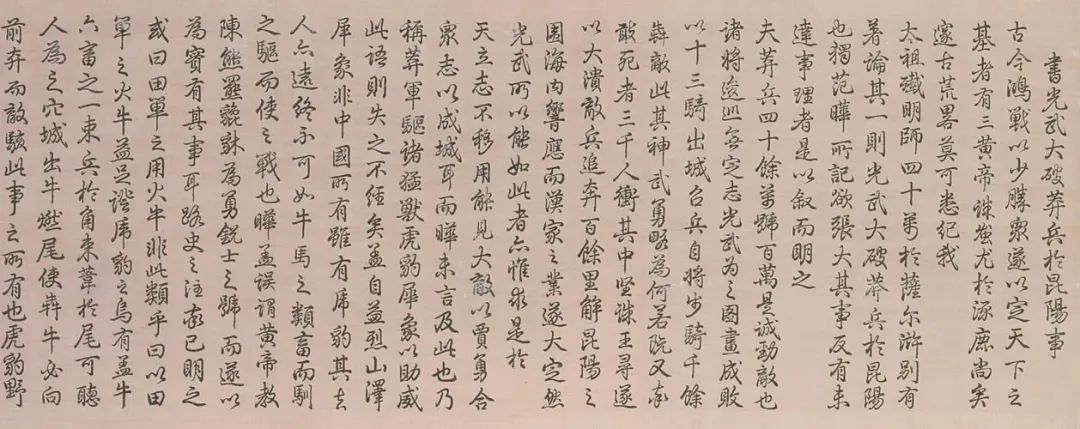 書光武大破莽兵於昆陽事
古今鴻戰以少勝衆遂以定天下之
基者有三黄帝誅蚩尤於涿鹿尚矣
邃古荒畧莫可悉紀我
太祖殲明師四十萬於薩尔滸别有
著論其一則光武大破莽兵於昆陽
也獨范曄所記欲張大其事反有未
達事理者是以叙而明之
夫莽兵四十餘萬號百萬是誠勁敵也
諸將逡巡無定志光武為之圖畫成敗
以十三騎出城召兵自將步騎千餘
犇敵此其神武勇略為何若既又率
敢死者三千人衝其中坚誅王尋遂
以大潰敵兵追奔百餘里解昆陽之
圍海内響應而漢家之業遂大定然
光武所以能如此者亦惟求是於
天立志不移用能見大敵以賈勇合
衆志以成城耳而曄未言及此也乃
稱莽軍驅諸猛獸虎豹犀象以助威
此語則失之不經矣盖自益烈山澤
犀象非中國所有雖有虎豹其去
人亦遠終不可如牛馬之類畜而馴
之驅而使之戰也曄盖误谓黄帝教
陳熊羆貔貅為勇鋭士之號而遂以
為實有其事耳路史之注亦已明之
或曰田單之用火牛非此類乎曰以田
單之火牛益足證虎豹之烏有盖牛
六畜之一束兵於角束葦於尾可聽
人為之穴城出牛燃尾使犇牛必向
前奔而敵駭此事之所有也虎豹野